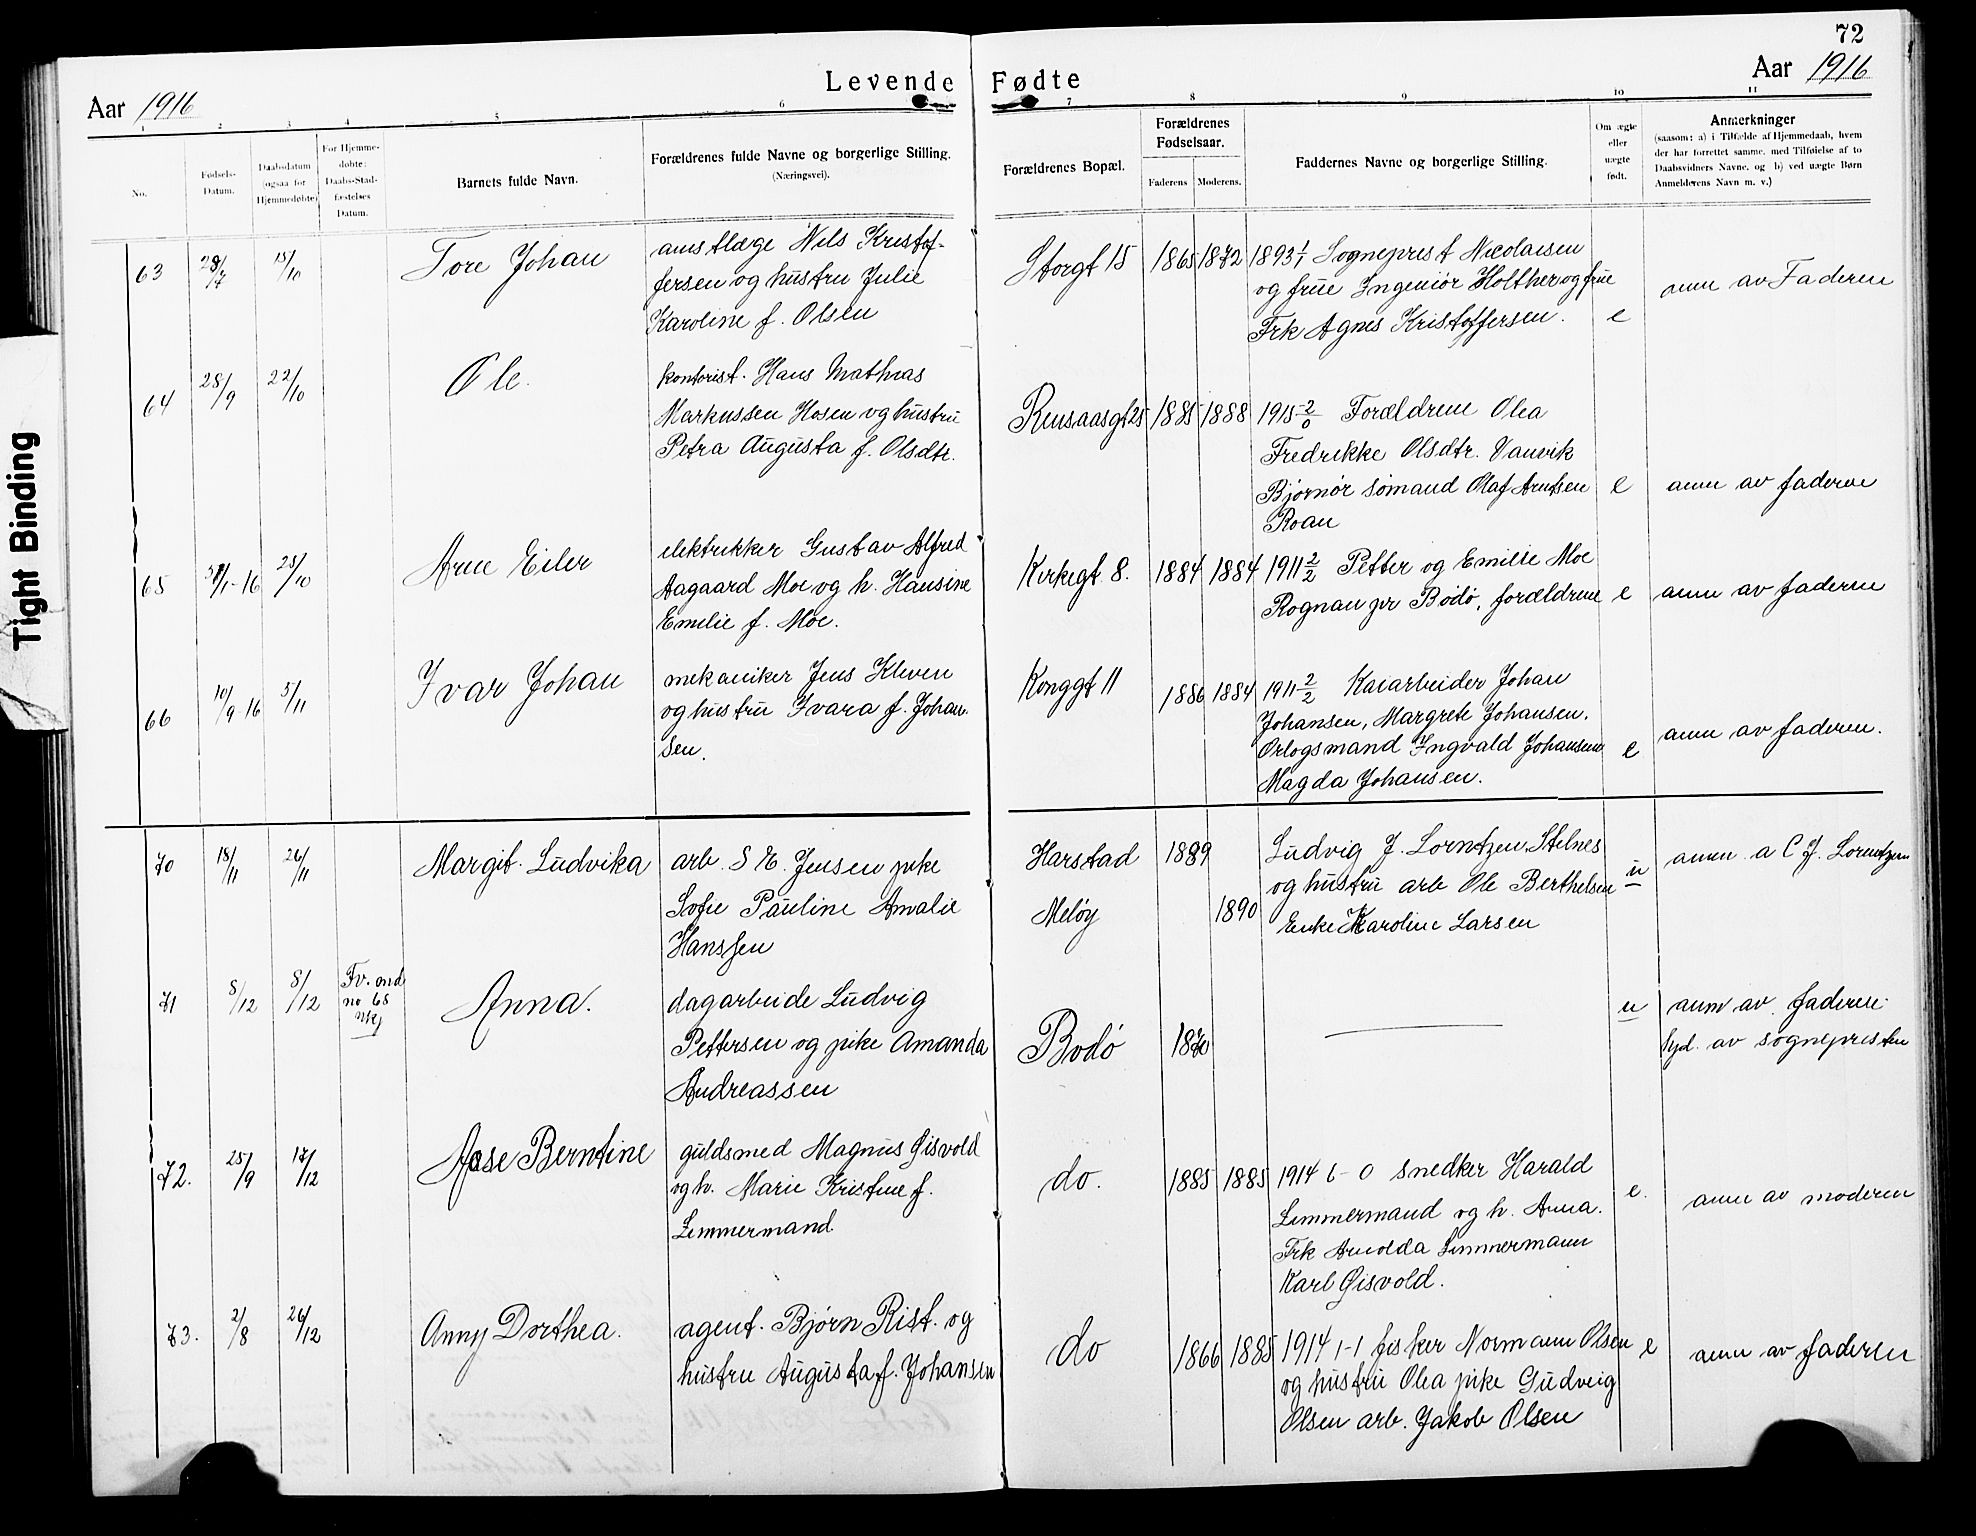 72
Levende Fødte
Aar 1916
Aar 1916
1 2 3 4 5 6 7 8 9 10 11
No.
Fødsels-
Datum.
Daabsdatum
(ogsaa for
Hjemmedøbte)
For Hjemme-
døbte:
Daabs-Stad-
fæstelses
Datum.
Barnets fulde Navn.
Forældrenes fulde Navne og borgerlige Stilling.
(Næringsvei).
Forældrenes Bopæl.
Forældrenes
Fødselsaar.
Faderens Moderens.
Faddernes Navne og borgerlige Stilling.
Om ægte
eller
uægte
født.
Anmerkninger
(saasom: a) i Tilfælde af Hjemmedaab, hvem
der har forrettet samme, med Tilføielse af to
Daabsvidners Navne, og b) ved uægte Børn
Anmelderens Navn m. v.)
63
28/7
15/10
Tore Johan
amstlæge Nils Kristof-
fersen og hustru Julie
Karoline f. Olsen
Storgt 15
1865 1872
1893 1/1 Sogneprest Nicolaisen
og frue Ingeniør Holther og frue
Frk Agnes Kristoffersen.
e
anm av Faderen
64
28/9
22/10
Ole.
kontorist. Hans Mathias
Markussen Hosen og hustru
Petra Augusta f. Olsdtr.
Rensaasgt 25
1885 1888
1915 2/0 Forældrene Olea
Fredrikke Olsdtr. Vanvik
Bjørnør sømand Olaf Arntsen
Roan
e
anm av faderen
65
/1-16
25/10
Arne Eiler
elektrikker Gustav Alfred
Aagaard Moe og h. Hansine
Emilie f. Moe.
Kirkegt 8.
1884 1884
1911 2/2 Petter og Emilie Moe
Rognan pr Bodø, forældrene
e
anm av faderen
66
10/9 16
5/11
Ivar Johan
mekaniker Jens Kleven
og hustru Ivara f. Johan-
sen.
Konggt 11
1886 1884
1911 2/2 Kaiarbeider Johan
Johansen, Margrete Johansen.
Orlogsmand Ingvald Johansen
Magda Johansen.
e
anm av faderen.
70
18/11
26/11
Margit. Ludvika
arb. S E. Jensen pike
Sofie Pauline Amalie
Hanssen
Harstad
Meløy
1889
1890
Ludvig J. Lorntzen Stelnes
og hustru arb Ole Berthelsen
Enke Karoline Larsen
u
anm. a C J. Lorentzen
71
8/12
8/12
Fv. ond
no 65
Anna.
dagarbeide Ludvig
Pettersen og pike Amanda
Andreassen
Bodø
1870
u
anm av faderen
av sognepresten
72.
25/9
17/12
Aase Berntine
guldsmed Magnus Gisvold
og h. Marie Kristine f.
Zimmermand
do.
1885 1885
1914 6-0 snedker Harald
Zimmermand og h. Anna.
Frk Arnolda Zimmermann
Karl Gisvold.
e.
anm av moderen
73.
2/8
26/12
Anny Dorthea.
agent. Bjørn Rist. og
hustru Augusta f. Johansen
do
1866 1885
1914 1-1 fisker Normann Olsen
og hustru Olea pike Gudveig
Olsen arb. Jakob Olsen
e
anm av faderen
Tight Binding